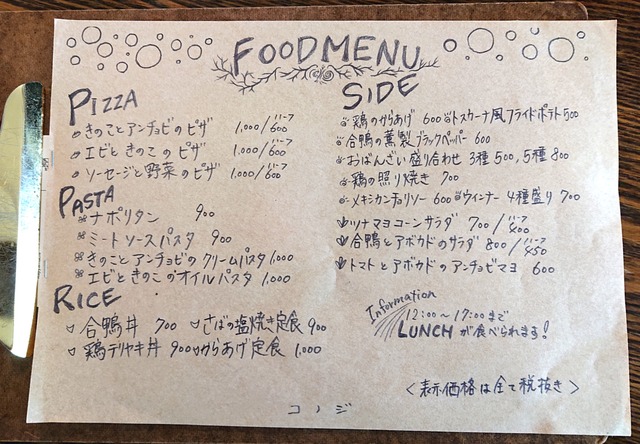 FOOD MENU
PIZZA
きのことアンチョビのピザ 1,000/ハーフ600
エビときのこのピザ 1,000/ハーフ600
ソーセージと野菜のピザ 1,000/ハーフ600
PASTA
ナポリタン 900
ミートソースパスタ 900
きのことアンチョビのクリームパスタ 1,000
エビときのこのオイルパスタ 1,000
RICE
合鴨丼 700 さばの塩焼き定食 900
鶏テリヤキ丼 900 からあげ定食 1,000
SIDE
鶏のからあげ 600 トスカーナ風フライドポテト 500
合鴨の薫製ブラックペーパー 600
おばんざい盛り合わせ 3種 500, 5種 800
鶏の照り焼き 700
メキシカンチョリソー 600 ウィンナー 4種盛り 700
ツナマヨコーンサラダ 700/ハーフ400
合鴨とアボカドのサラダ 800/ハーフ450
トマトとアボカドのアンチョビマヨ 600
Information
12:00〜17:00まで
LUNCHが食べられます!
<表示価格は全て税抜き>
コノジ